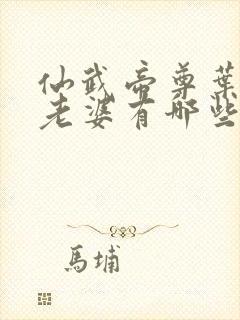 仙武帝尊葉
老婆有哪些
馬埔